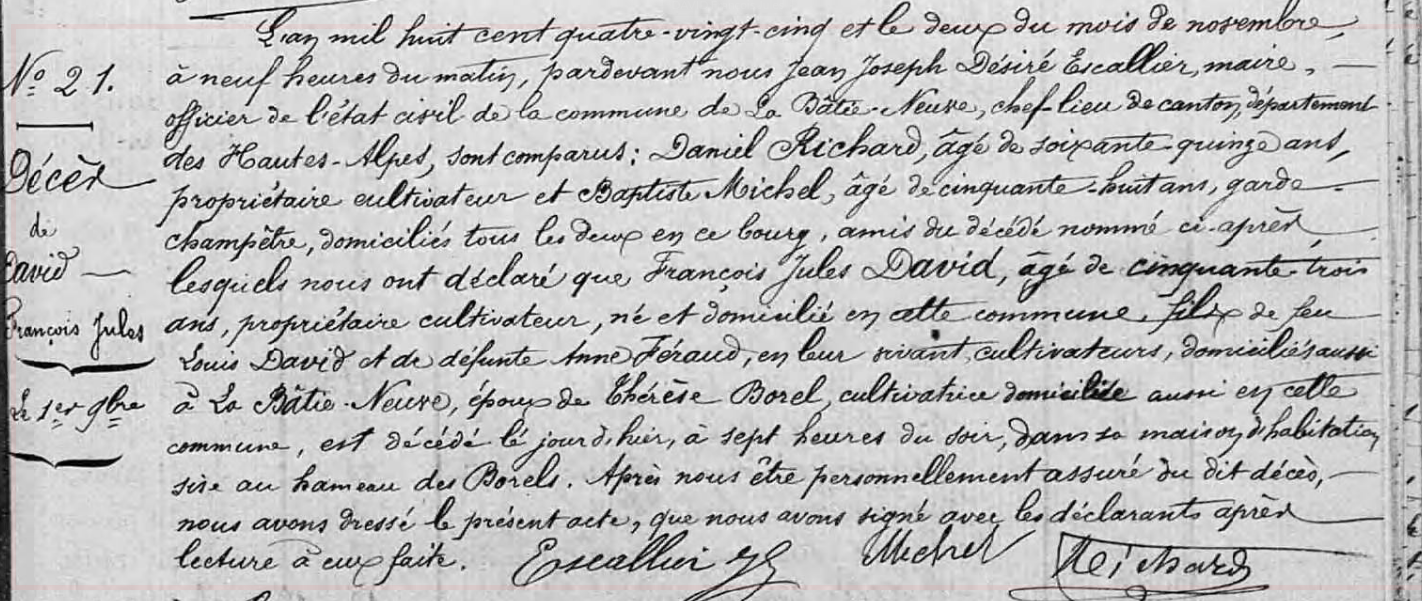 L'an mil huit cent quatre-vingt-cinq et le deux du mois de novembre,
à neuf heures du matin, pardevant nous Jean Joseph Désiré Escallier, maire,
officier de l'état civil de la commune de La Bâtie-Neuve, chef-lieu de canton, département
des Hautes-Alpes, sont comparus: Daniel Richard, âgé de soixante quinze ans,
propriétaire cultivateur et Baptiste Michel, âgé de cinquante-huit ans, garde
champêtre, domiciliés tous les deux en ce bourg, amis du décédé nommé ci-après,
lesquels nous ont déclaré que François Jules David, âgé de cinquante-trois
ans, propriétaire cultivateur, né et domicilié en cette commune, fils de feu
Louis David et de défunte Anne Féraud, en leur vivant, cultivateurs, domiciliés aussi
à La Bâtie-Neuve, époux de Thérèse Borel, cultivatrice domiciliée aussi en cette
commune, est décédé le jour d'hier, à sept heures du soir, dans sa maison d'habitation
sise au hameau des Borels. Après nous être personnellement assuré du dit décès,
nous avons dressé le présent acte, que nous avons signé avec les déclarants après
lecture à eux faite. Escallier Michel Richard
No 21.
Décès
de
David
François Jules
Le 1er 9bre